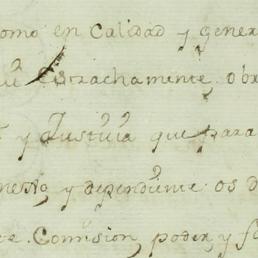 como en Calidad y gener
estrachamente obr
y Justicia que para
y dependiente os d
Comision, poder y f